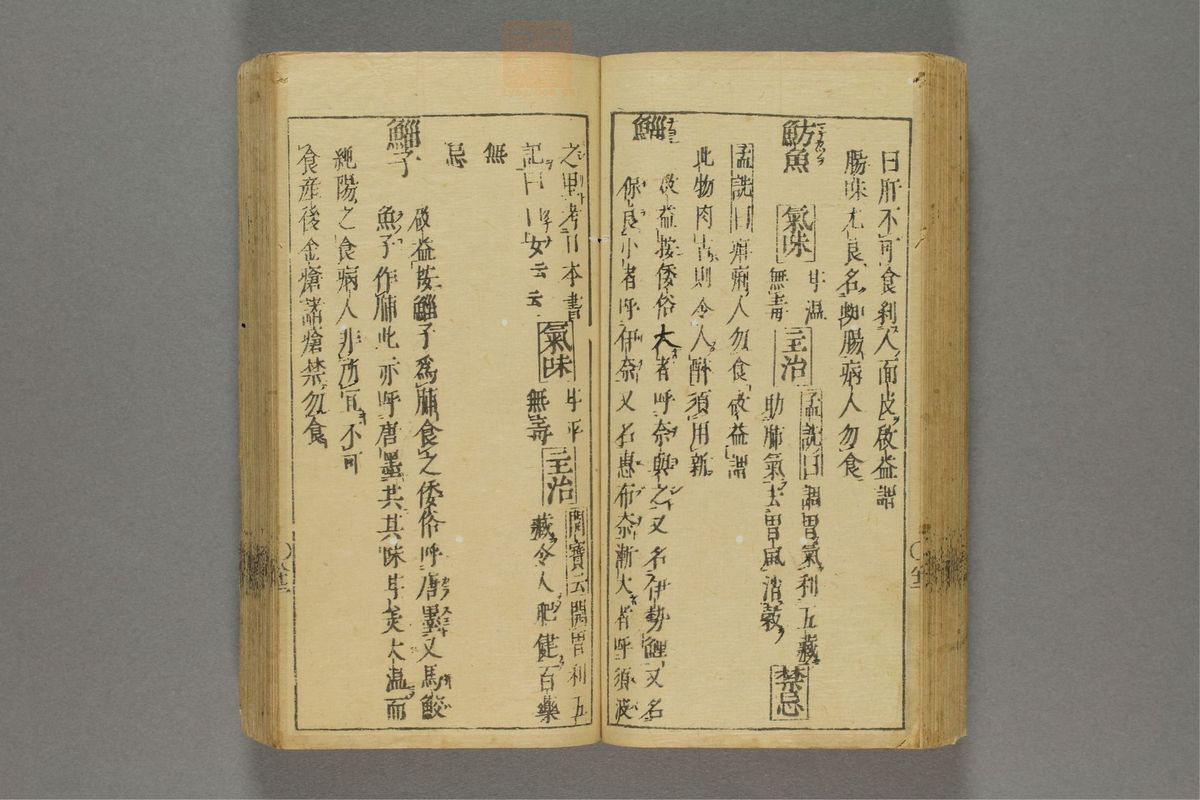 日肝不可食刹人面皮啟益謂
腸味尤良名蜘腸病人勿食
魴魚 氣味 甘溫 無毒 主治 孟詵曰調胃氣利五藏
助肺氣去胃風消穀 禁忌
孟詵曰疳痢人勿食啟益謂
此物肉古則令人醉須用新
鯔
啟益按倭俗大者呼奈與之又名伊勢鯉又名
保良小者呼伊奈又名惠布奈漸大者呼須波
之里考日本書
記曰口女云云 氣味 甘平 無毒 主治 開寶云開胃利五
藏令人肥健百藥
無
忌
鯔子
啟益按鯔子爲脯食之倭俗呼唐墨又馬鮫
魚子作脯此亦呼唐墨共其味甘美大溫而
純陽之食病人非所宜不可
食産後金瘡諸瘡禁勿食